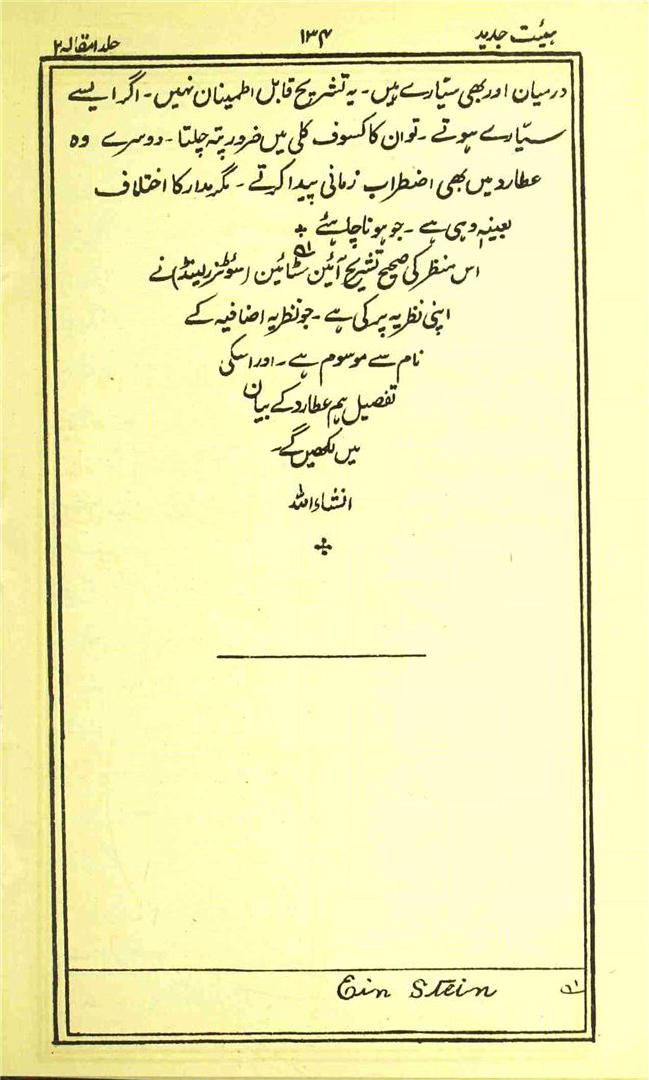 ہیئت جدید ۱۳۴ جلد ۱ مقالہ ۲
درمیان اور بھی ستیارے ہیں۔ یہ تشریح قابل اطمینان نہیں۔ اگر ایسے
سیّارے ہوتے۔ تو ان کا کسوف کلی میں ضرور پتہ چلتا۔ دوسرے وہ
عطارد میں بھی اضطراب زمانی پیدا کرتے۔ مگر مدار کا اختلاف
بعینہٖ وہی ہے۔ جو ہونا چاہئے ؞
اس منظر کی صحیح تشریح آئین سٹائین (سوئٹزرلینڈ) نے
اپنی نظریہ پر کی ہے۔ جو نظریہ اضافیہ کے
نام سے موسوم ہے۔ اور اسکی
تفصیل ہم عطارد کے بیان
میں لکھیں گے۔
انشاءاللہ
؞
Ein Stein